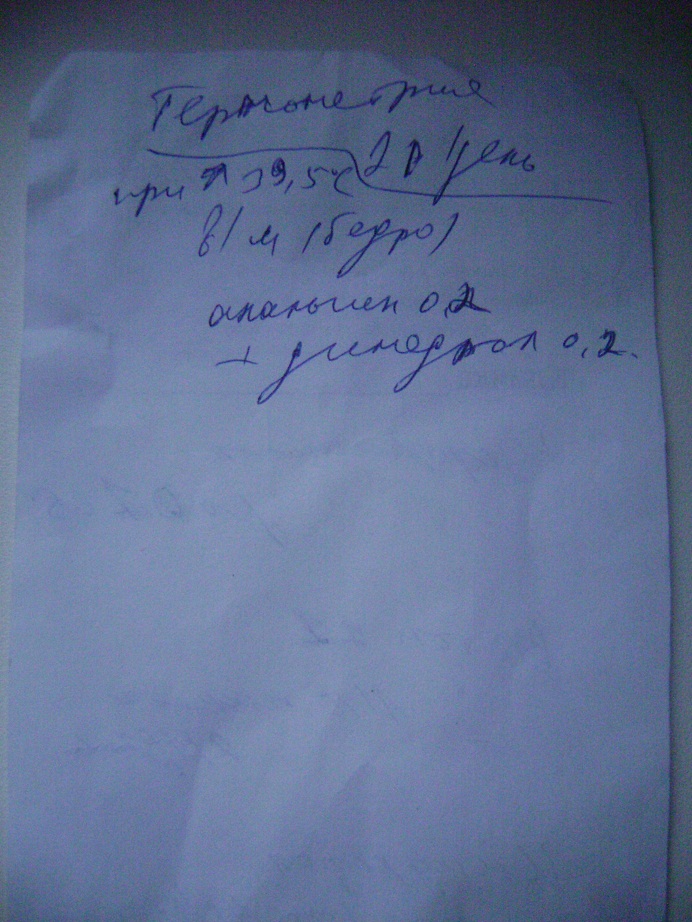 Термометрия
2 р/день
при ↑ 39,5°C
в/м (бедро)
анальгин 0,2
+ димедрол 0,2.